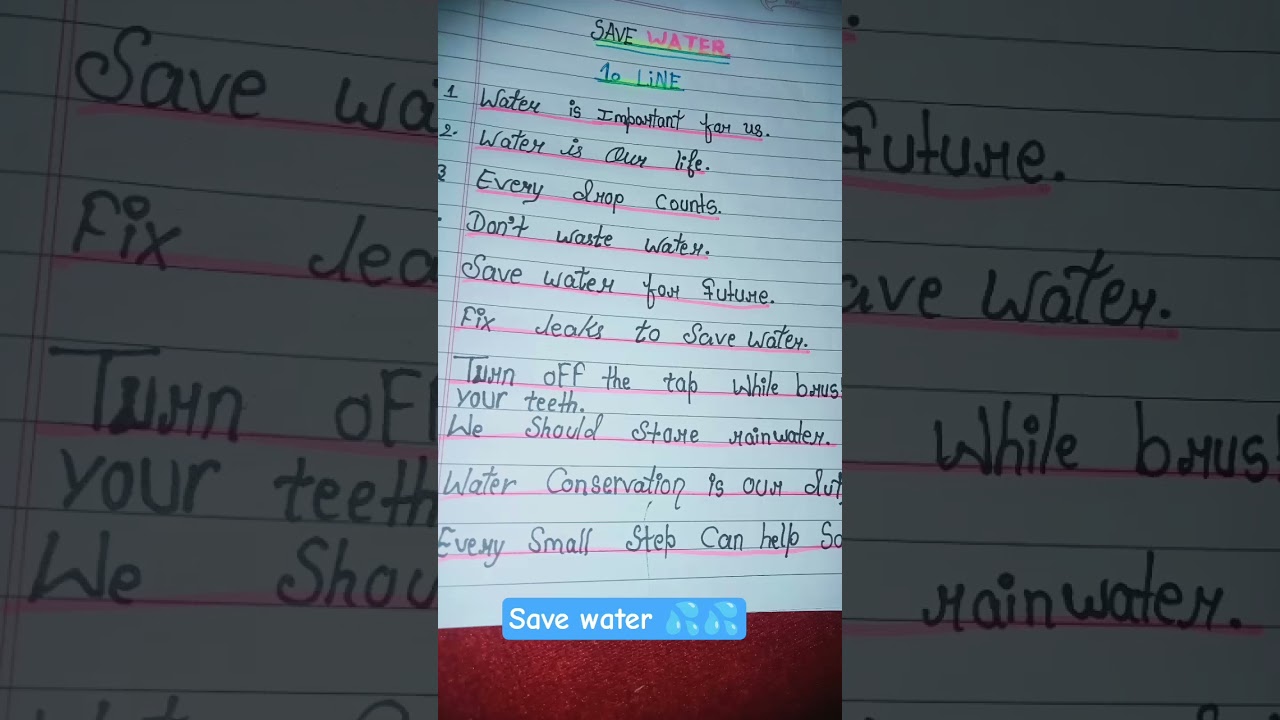 SAVE WATER
10 LINE
1 Water is Important for us.
2. Water is our life.
3 Every drop Counts.
Don't waste water.
Save water for future.
Fix leaks to Save water.
Turn off the tap While brus
your teeth.
We Should Store rainwater.
Water Conservation is our dut
Every Small Step Can help Sa
Save water 💦💦